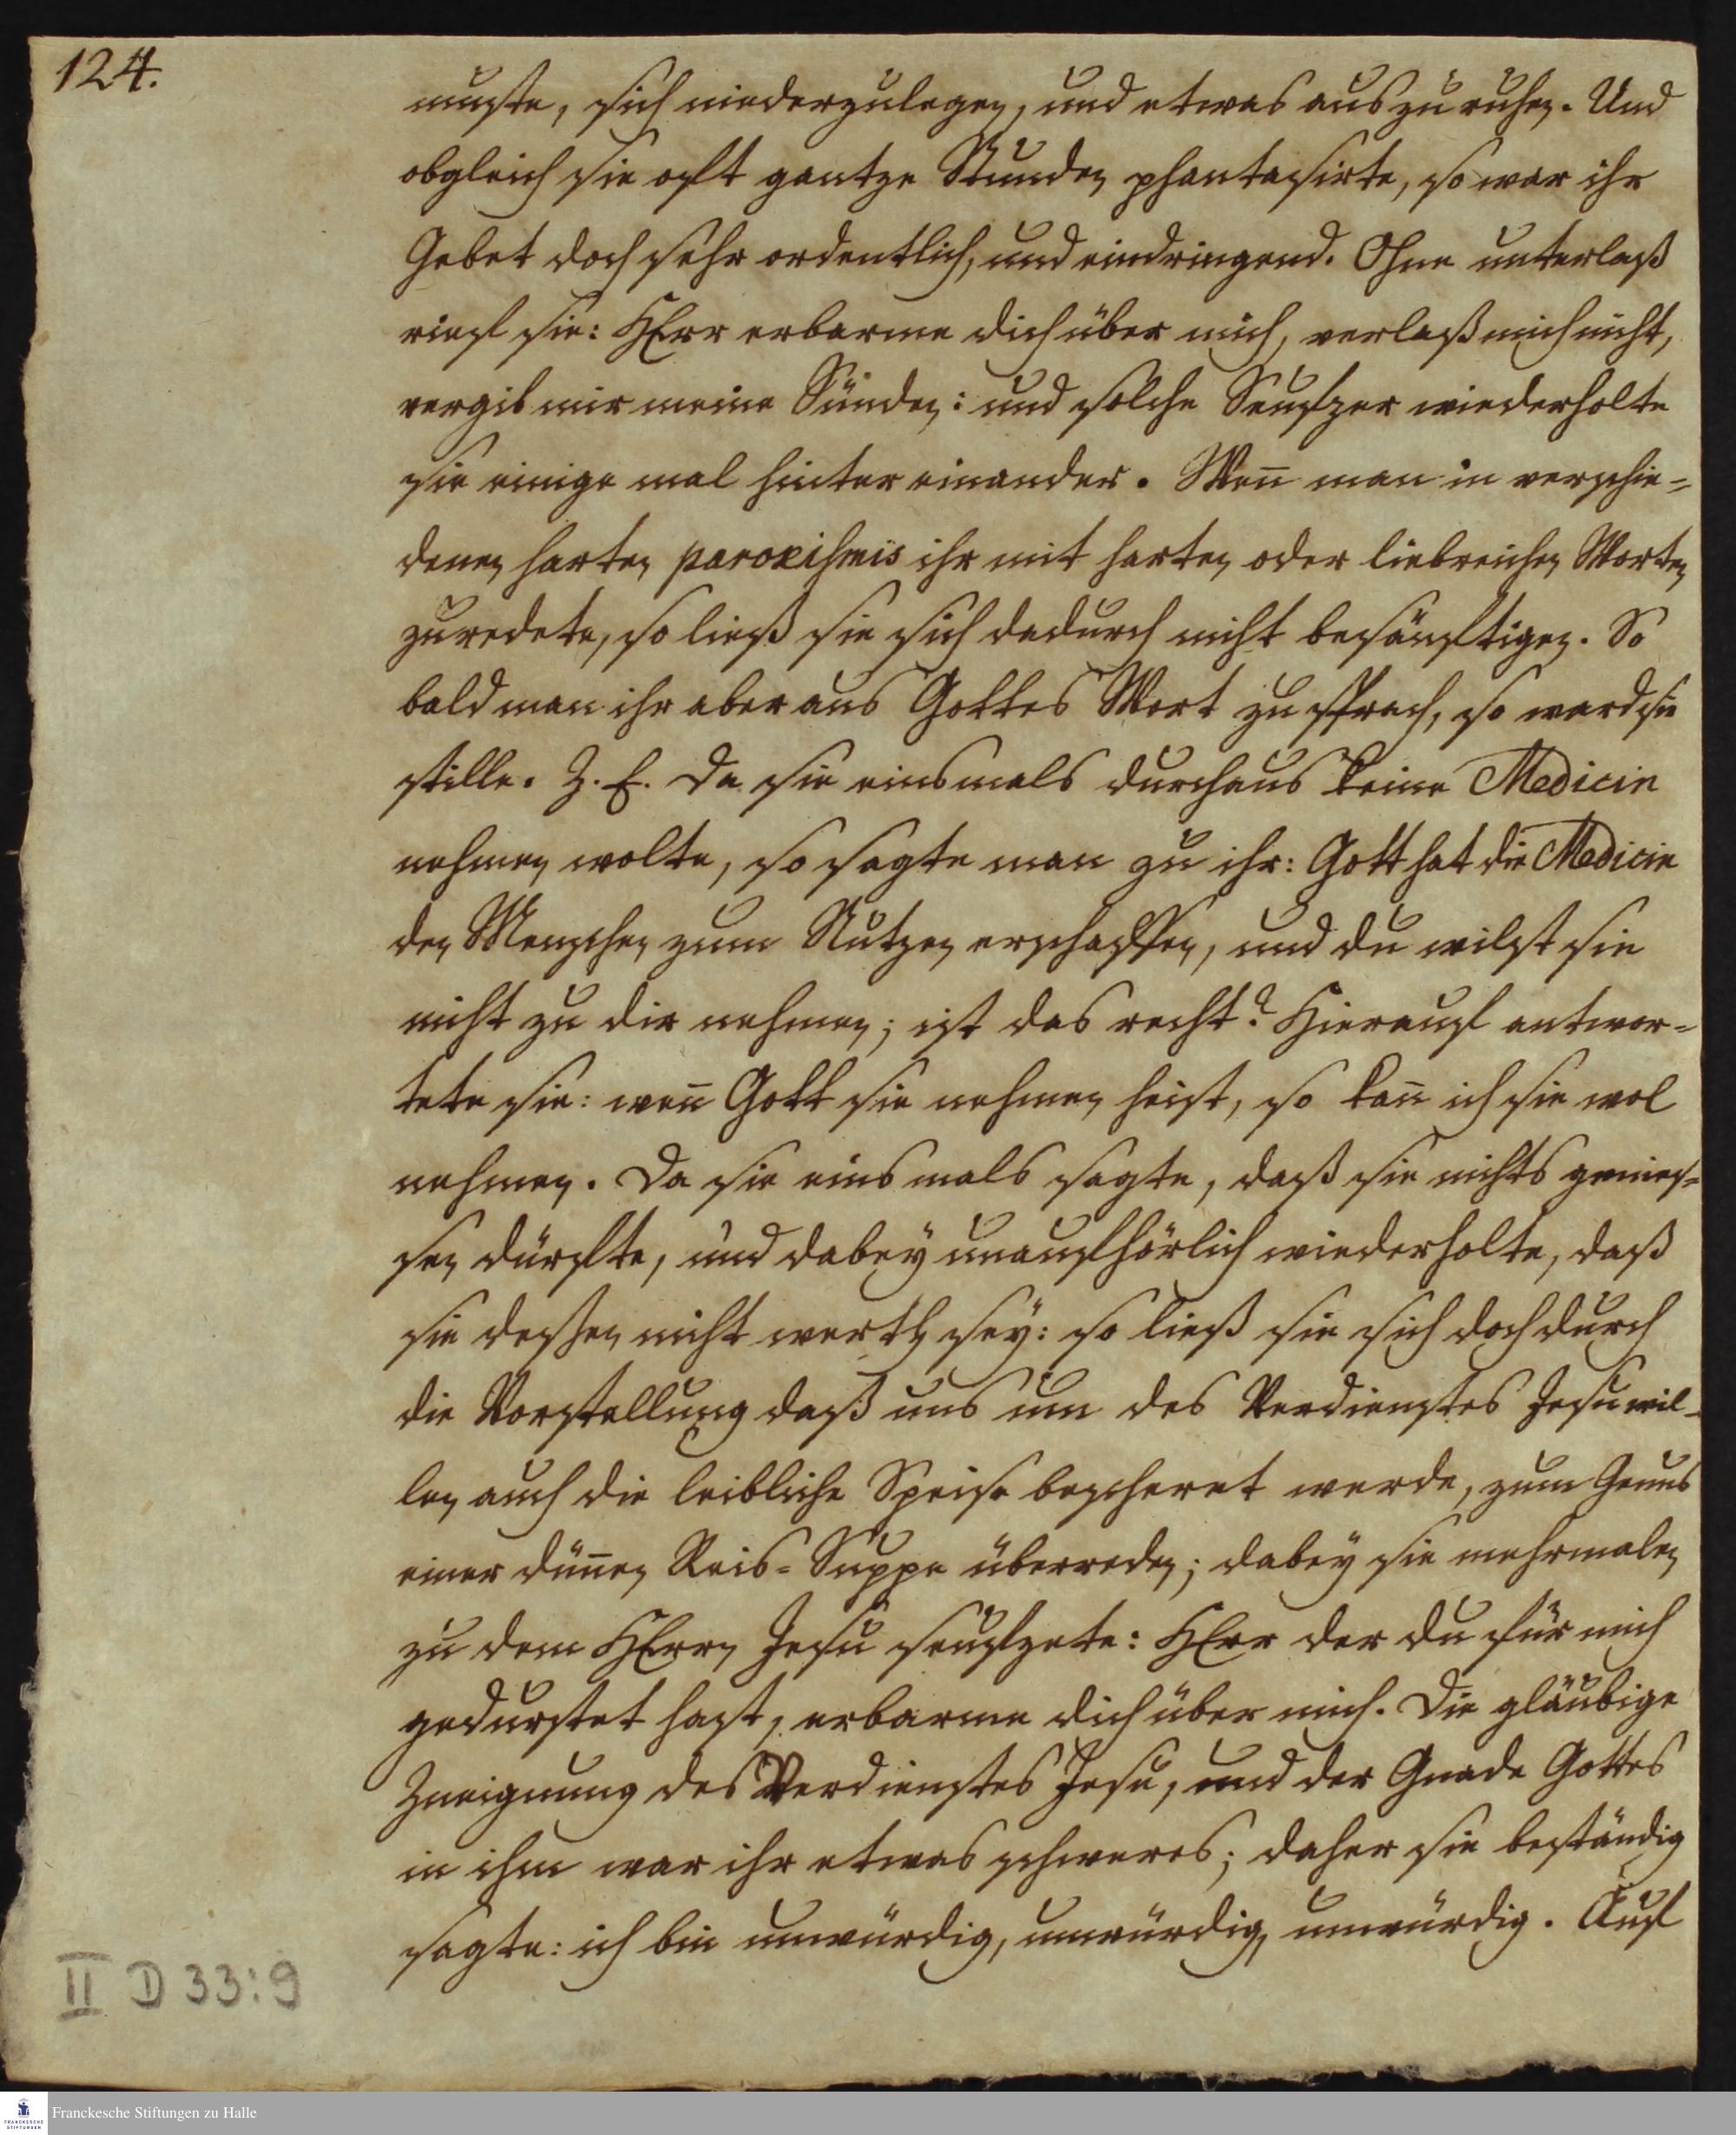 124.
muste, sich niederzulegen, und etwas auszuruhen. Und
obgleich sie oft gantze Stunden phantasirte, so war ihr
Gebet doch sehr ordentlich, und eindringend. Ohne unterlaß
rief sie: HErr erbarme dich über mich, verlaß mich nicht,
vergib mir meine Sünden: und solche Seufzer wiederholte
sie einige mal hinter einander. Weñ man in verschie=
denen harten paroxismis ihr mit harten oder liebreichen Worten
zuredete, so ließ sie sich dadurch nicht besänftigen. So
bald man ihr aber aus Gottes Wort zu sprach, so ward sie
stille. Z. E. Da sie einsmals durchaus keine Medicin
nehmen wolte, so sagte man zu ihr: Gott hat die Medicin
den Menschen zum Nutzen erschaffen, und du wilst sie
nicht zu dir nehmen; ist das recht? Hierauf antwor=
tete sie: weñ Gott sie nehmen heist, so kañ ich sie wol
nehmen. Da sie einsmals sagte, daß sie nichts genies=
sen dürfte, und dabey unaufhörlich wiederholte, daß
sie dessen nicht werth sey: so ließ sie sich doch durch
die Vorstellung daß uns um des Verdienstes Jesu wil=
len auch die leibliche Speise bescheret werde, zum Genus
einer düñen Reis=Suppe überreden; dabey sie mehrmalen
zu dem HErrn Jesu seufzete: HErr der du für mich
gedurstet hast, erbarme dich über mich. Die gläubige
Zueignung des Verdienstes Jesu, und der Gnade Gottes
in ihm war ihr etwas schweres; daher sie beständig
sagte: ich bin unwürdig, unwürdig, unwürdig. Auf
II D 33:9
FRANCKESCHE STIFTUNGEN
Franckesche Stiftungen zu Halle